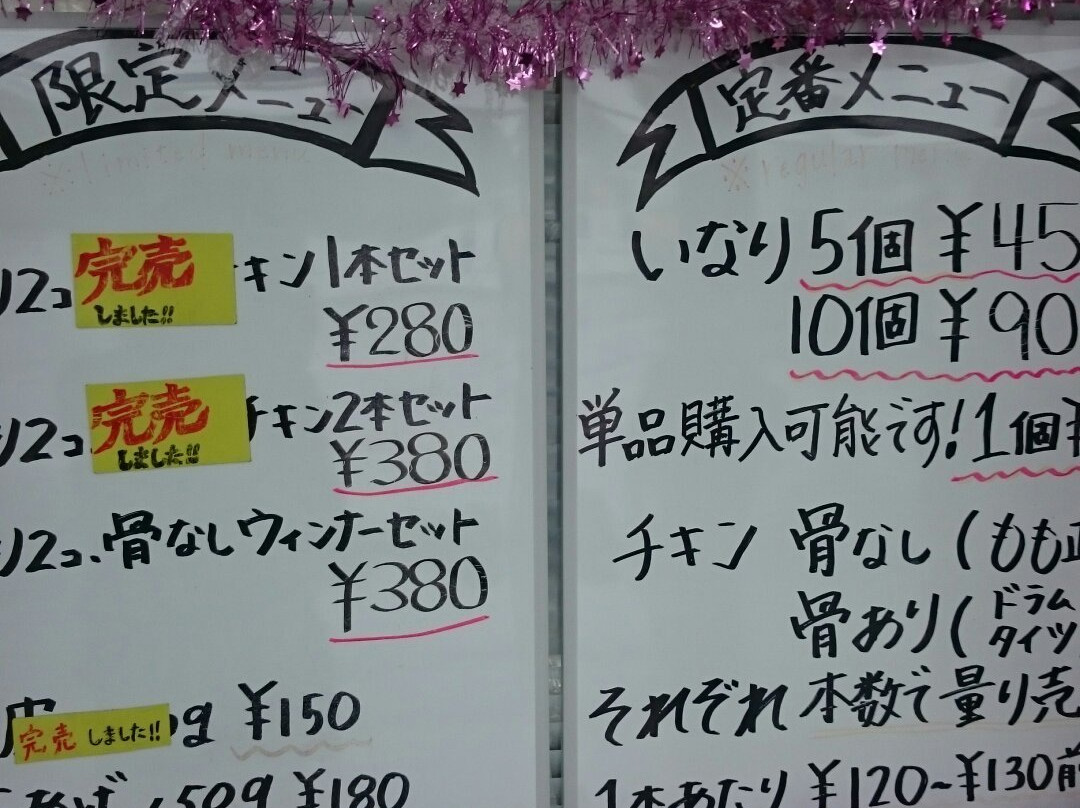 限定メニュー
※limited menu
り2コ 完売しました!! キン1本セット
¥280
り2コ 完売しました!! チキン2本セット
¥380
り2コ、骨なしウィンナーセット
¥380
皮 完売しました!! 0g ¥150
50g ¥180
定番メニュー
※regular
いなり5個 ¥45
10個 ¥90
単品購入可能です!1個
チキン 骨なし(もも正
骨あり(ドラム
タイツ
それぞれ 本数で量り売
1本あたり ¥120~¥130前